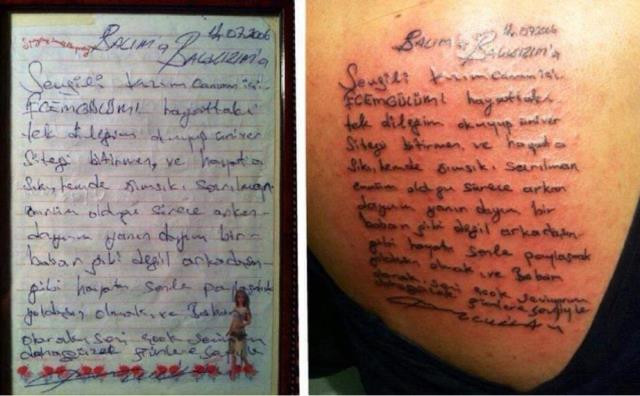 BALIM'a 14.07.2006
BALKIZIM'a
Sevgili kızım canım içi
ECEMGÜLÜMİ hayattaki
tek dileğim okuyup üniver
Sitegi bitirmen, ve hayata
Sıkı, hemde sımsıkı sarılman
ömrüm oldgu sürece arkan
dayım yanın dayım bir
baban gibi değil arkadaşın
gibi hayatı senle paylaşmak
yoldaşın olmak, ve Baban
olarak seni çook seviyorum
daha güzel günlere sevgiyle
BALIM'a 14.07.2006
BALKIZIM'a
Sevgili kızım canım içi
ECEMGÜLÜMİ hayattaki
tek dileğim okuyup üniver
Sitegi bitirmen, ve hayata
Sıkı, hemde sımsıkı sarılman
ömrüm oldgu sürece arkan
dayım yanın dayım bir
baban gibi değil arkadaşın
gibi hayatı senle paylaşmak
yoldaşın olmak, ve Baban
olarak seni çook seviyorum
daha güzel günlere sevgiyle